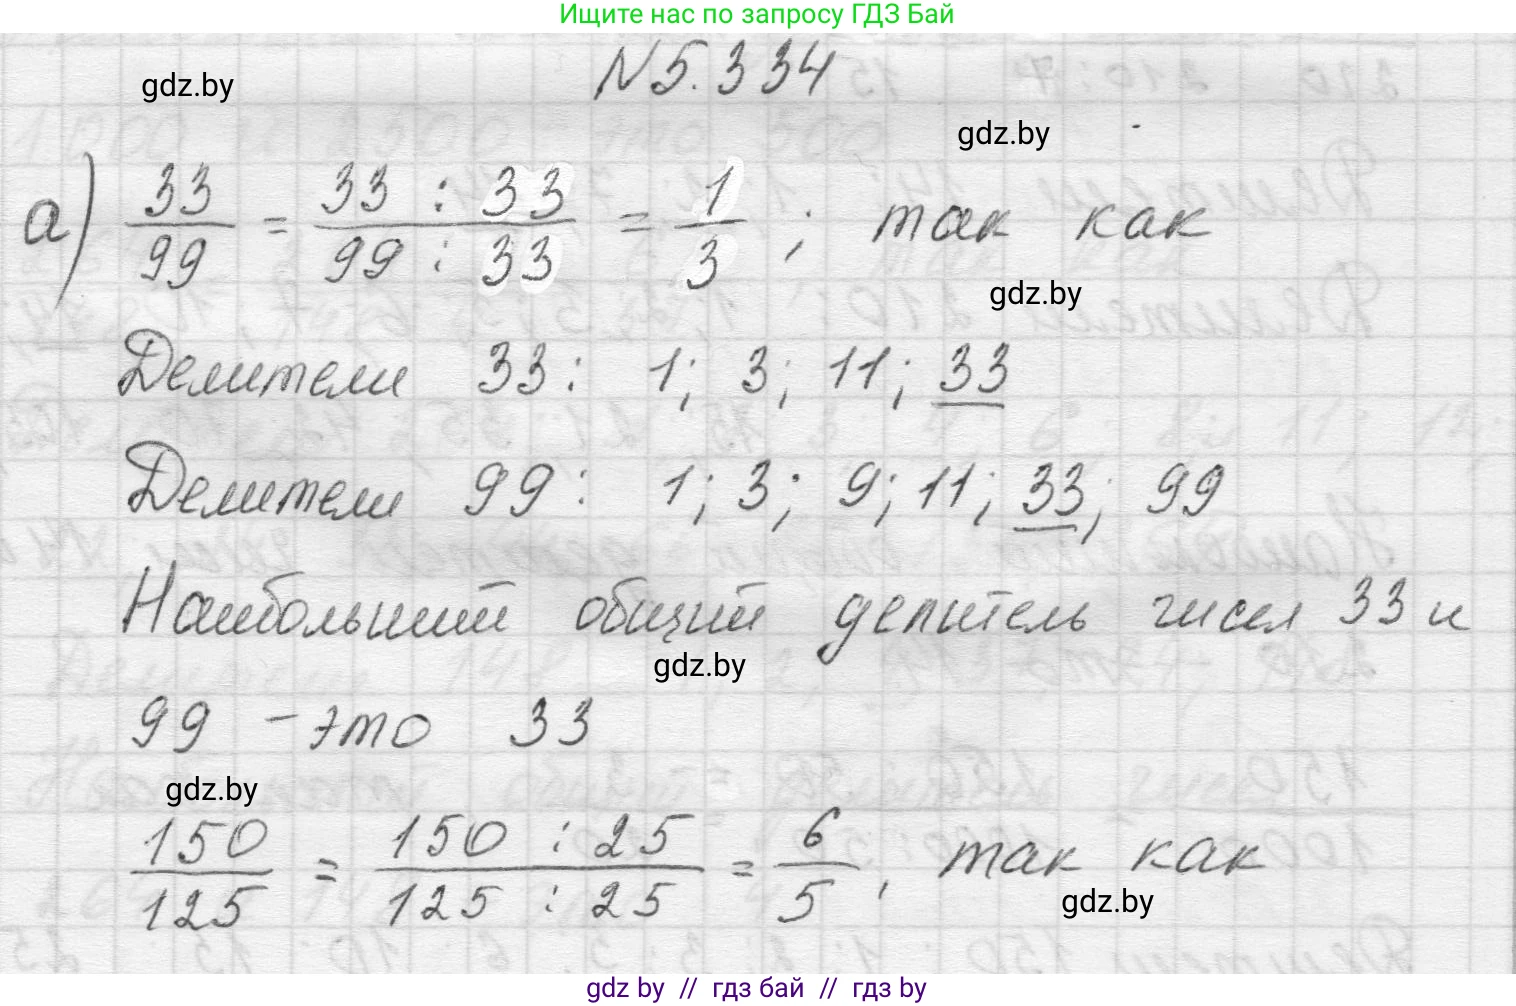 Ищите нас по запросу ГДЗ Бай
N5.334
gdz.by
gdz.by
а) 33/99 = 33 : 33/99 : 33 = 1/3 ; так как
gdz.by
Делители 33: 1; 3; 11; 33
Делители 99: 1; 3; 9; 11; 33; 99
Наибольший общий делитель чисел 33 и
gdz.by
99 - это 33
gdz.by
150/125 = 150 : 25/125 : 25 = 6/5, так как
gdz.by
gdz by // гдз бай // гдз by